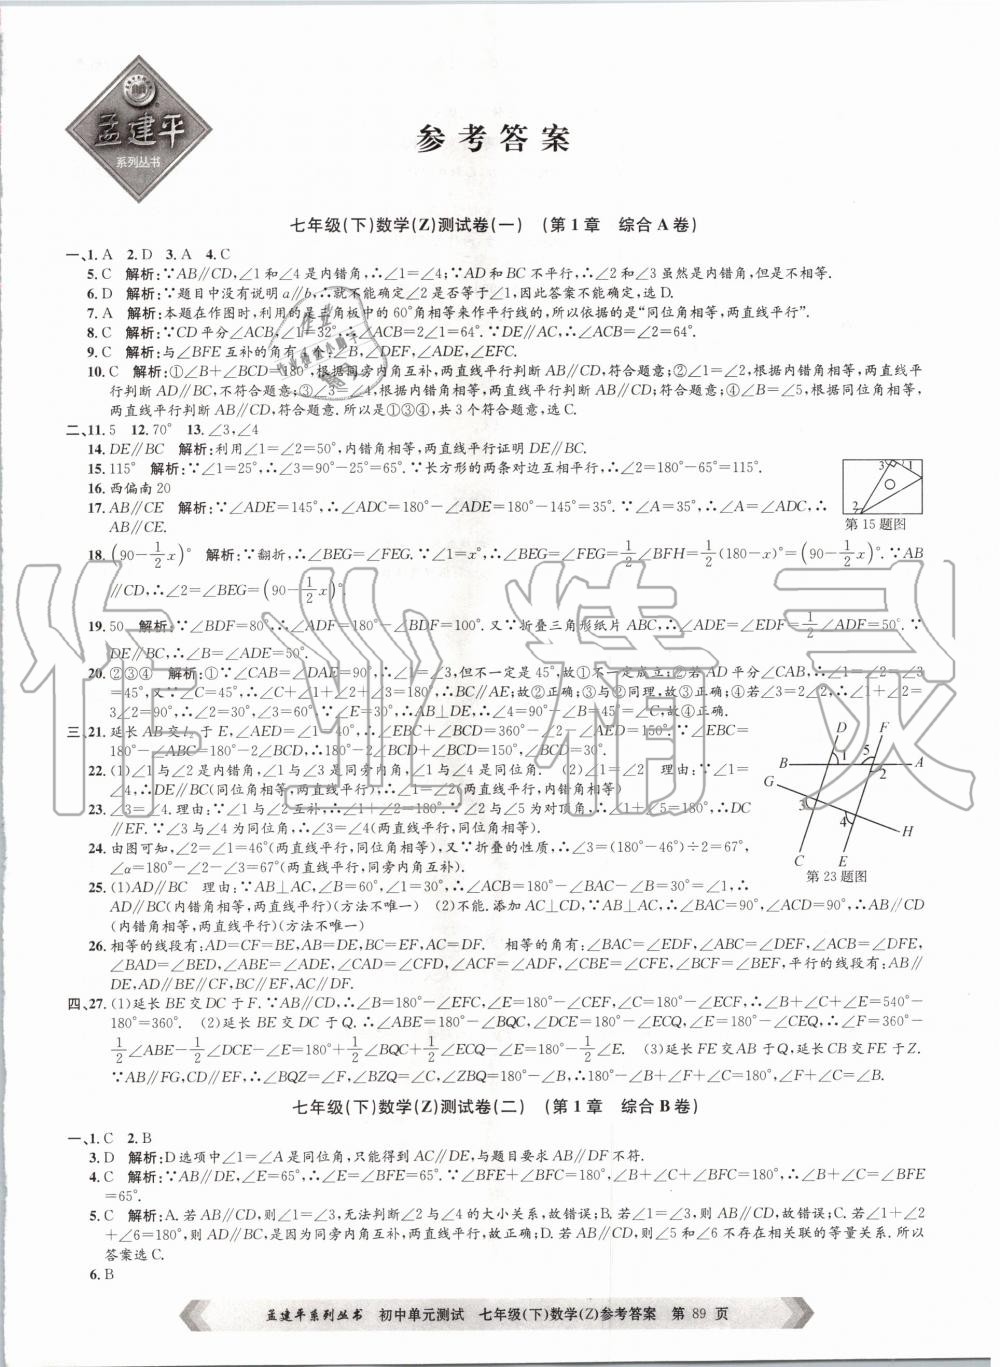 孟建平
系列丛书
参考答案
七年级(下)数学(Z)测试卷(一) (第1章 综合A卷)
一、1. A 2. D 3. A 4. C
5. C 解析:∵AB∥CD,∠1和∠4是内错角,∴∠1=∠4;∵AD和BC不平行,∴∠2和∠3虽然是内错角,但是不相等.
6. D 解析:∵题目中没有说明a∥b,∴就不能确定∠2是否等于∠1,因此答案不能确定,选D.
7. A 解析:本题在作图时,利用的是三角板中的60°角相等来作平行线的,所以依据的是“同位角相等,两直线平行”.
8. C 解析:∵CD平分∠ACB,∠1=32°,∴∠ACB=2∠1=64°.∵DE∥AC,∴∠ACB=∠2=64°.
9. C 解析:与∠BFE互补的角有4个:∠B,∠DEF,∠ADE,∠EFC.
10. C 解析:①∠B+∠BCD=180°,根据同旁内角互补,两直线平行判断AB∥CD,符合题意;②∠1=∠2,根据内错角相等,两直线平
行判断AD∥BC,不符合题意;③∠3=∠4,根据内错角相等,两直线平行判断AB∥CD,符合题意;④∠B=∠5,根据同位角相等,
两直线平行判断AB∥CD,符合题意.所以是①③④,共3个符合题意,选C.
二、11. 5 12. 70° 13. ∠3,∠4
14. DE∥BC 解析:利用∠1=∠2=50°,内错角相等,两直线平行证明DE∥BC.
15. 115° 解析:∵∠1=25°,∴∠3=90°-25°=65°.∵长方形的两条对边互相平行,∴∠2=180°-65°=115°.
16. 西偏南20
17. AB∥CE 解析:∵∠ADE=145°,∴∠ADC=180°-∠ADE=180°-145°=35°.∵∠A=35°,∴∠A=∠ADC,∴
AB∥CE.
3 1
2
第15题图
18. (90-1/2x)° 解析:∵翻折,∴∠BEG=∠FEG.∵∠1=x°,∴∠BEG=∠FEG=1/2∠BFH=1/2(180-x)°=(90-1/2x)°.∵AB
∥CD,∴∠2=∠BEG=(90-1/2x)°.
19. 50 解析:∵∠BDF=80°,∴∠ADF=180°-∠BDF=100°.又∵折叠三角形纸片ABC,∴∠ADE=∠EDF=1/2∠ADF=50°.∵
DE∥BC,∴∠B=∠ADE=50°.
20. ②③④ 解析:①∵∠CAB=∠DAE=90°,∴∠1=∠3,但不一定是45°,故①不一定成立;②若AD平分∠CAB,∴∠1=∠2=∠3
=45°,又∵∠C=45°,∴∠C+∠1+∠2+∠3=180°,∴BC∥AE;故②正确;③与②同理,故③正确;④若∠3=2∠2,∴∠1+∠2=
3∠2=90°,∴∠2=30°,∠3=60°.∵∠E=30°,∴AB⊥DE,∴∠4=90°-∠B=45°=∠C,故④正确.
三、21. 延长AB交l₂于E,∠AED=∠1=40°,∴∠EBC+∠BCD=360°-∠2-∠AED=150°.∵∠EBC=
180°-∠ABC=180°-2∠BCD,∴180°-2∠BCD+∠BCD=150°,∠BCD=30°.
22. (1)∠1与∠2是内错角,∠1与∠3是同旁内角,∠1与∠4是同位角. (2)∠1=∠2 理由:∵∠1=
∠4,∴DE∥BC(同位角相等,两直线平行),∴∠1=∠2(两直线平行,内错角相等)
23. ∠3=∠4.理由:∵∠1与∠2互补,∴∠1+∠2=180°.∵∠2与∠5为对顶角,∴∠1+∠5=180°,∴DC
∥EF.∵∠3与∠4为同位角,∴∠3=∠4(两直线平行,同位角相等).
24. 由图可知,∠2=∠1=46°(两直线平行,同位角相等),又∵折叠的性质,∴∠3=(180°-46°)÷2=67°,
∠α=180°-∠2-∠3=67°(两直线平行,同旁内角互补).
25. (1)AD∥BC 理由:∵AB⊥AC,∠B=60°,∠1=30°,∴∠ACB=180°-∠BAC-∠B=30°=∠1,∴
AD∥BC(内错角相等,两直线平行)(方法不唯一) (2)不能.添加AC⊥CD,∵AB⊥AC,∴∠BAC=90°,∠ACD=90°,∴AB∥CD
(内错角相等,两直线平行)(方法不唯一)
D F
B 1 5 A
2
G
3
4 H
C E
第23题图
26. 相等的线段有:AD=CF=BE,AB=DE,BC=EF,AC=DF. 相等的角有:∠BAC=∠EDF,∠ABC=∠DEF,∠ACB=∠DFE,
∠BAD=∠BED,∠ABE=∠ADE,∠CAD=∠CFD,∠ACF=∠ADF,∠CBE=∠CFE,∠BCF=∠BEF,平行的线段有:AB∥
DE,AD∥BE∥CF,BC∥EF,AC∥DF.
四、27. (1)延长BE交DC于F.∵AB∥CD,∴∠B=180°-∠EFC,∠E=180°-∠CEF,∠C=180°-∠ECF,∴∠B+∠C+∠E=540°-
180°=360°. (2)延长BE交DC于Q.∴∠ABE=180°-∠BQC,∠DCE=180°-∠ECQ,∠E=180°-∠CEQ,∴∠F=360°-
1/2∠ABE-1/2∠DCE-∠E=180°+1/2∠BQC+1/2∠ECQ-∠E=180°-1/2∠E. (3)延长FE交AB于Q,延长CB交FE于Z.
∵AB∥FG,CD∥EF,∴∠BQZ=∠F,∠BZQ=∠C,∠ZBQ=180°-∠B,∴∠F+∠C+180°-∠B=180°,∴∠F+∠C=∠B.
七年级(下)数学(Z)测试卷(二) (第1章 综合B卷)
一、1. C 2. B
3. D 解析:D选项中∠1=∠A是同位角,只能得到AC∥DE,与题目要求AB∥DF不符.
4. C 解析:∵AB∥DE,∠E=65°,∴∠E=∠BFE=65°.∵∠BFE+∠BFC=180°,∠B+∠C+∠BFC=180°,∴∠B+∠C=∠BFE
=65°.
5. C 解析:A.若AB∥CD,则∠1=∠3,无法判断∠2与∠4的大小关系,故错误;B.若∠1=∠3,则AB∥CD,故错误;C.若∠1+∠2
+∠6=180°,则AD∥BC,是因为同旁内角互补,两直线平行,故正确;D.若AB∥CD,则∠5和∠6不存在相关联的等量关系.所以
答案选C.
6. B
孟建平系列丛书 初中单元测试 七年级(下)数学(Z)参考答案 第 89 页
作业精灵